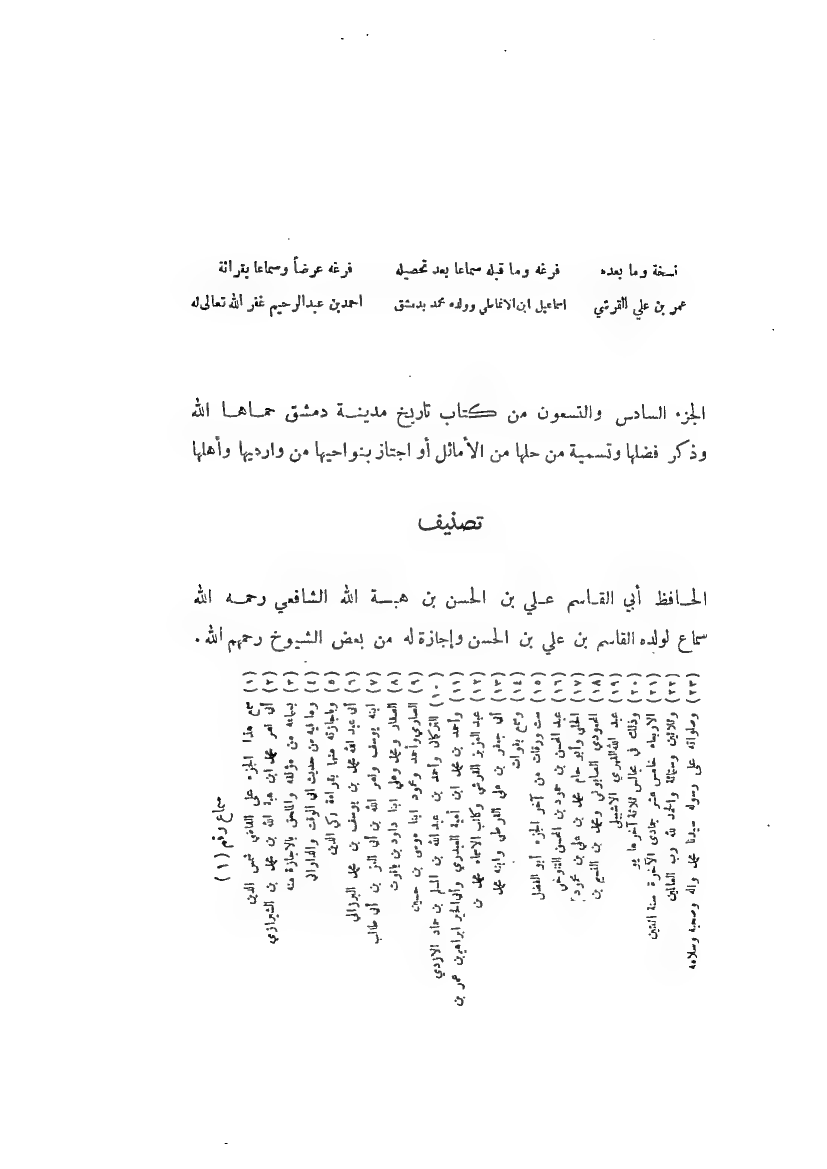 نسخة وما بعده فرغه وما قبله سماعا بعد تحصيله فرغه عرضاً وسماعا بقرائة
عمر بن علي القرشي اسماعيل ابن الانماطي وولده محمد بدمشق احمد بن عبد الرحيم غفر الله تعالى له
الجزء السادس والتسعون من كتاب تاريخ مدينة دمشق حماها الله
وذكر فضلها وتسمية من حلها من الأماثل أو اجتاز بنواحيها من وارديها وأهلها
تصنيف
الحافظ أبي القاسم علي بن الحسن بن هبة الله الشافعي رحمه الله
سماع لولده القاسم بن علي بن الحسن وإجازة له من بعض الشيوخ رحمهم الله.
سماع رقم (١)
(١) سمع هذا الجزء على القاضي شمس الدين
(٢) أبي نصر محمد ابن هبة الله بن محمد بن الشيرازي
(٣) بسماعه من مؤلفه والملحق بالاجازة منه
(٤) وما فيه من حديث ابي الوقت والداراني
(٥) وباجازته منهما بقراءة زكي الدين
(٦) أبي عبد الله محمد بن يوسف بن محمد البرزالي
(٧) ابنه يوسف ونصر الله بن أبي العز بن أبي طالب
(٨) الصفار ومحمد وعلي ابنا داود بن ياقوت
(٩) الصاري وأحمد ومحمود ابنا موسى بن حسين
(١٠) التركمان وأحمد بن عبد الله بن المسلم بن حماد الازدي
(١١) وأحمد بن محمد ابن أمية العبدري وأبي الخير ابراهيم بن عمر بن
(١٢) عبد العزيز القرشي وكاتب الاسماء محمد بن
(١٣) أبي جعفر بن علي القرطبي وابنه محمد
(١٤) وسمع بفوات
(١٥) ست ورقات من آخر الجزء أبو الفضل
(١٦) عبد المحسن بن حمود بن المحسن التنوخي
(١٧) الحلبي وأبو حامد محمد بن علي بن محمود
(١٨) المحمودي الصابوني ومحمد بن القسيم بن
(١٩) عبد الله الفهري الاشبيلي
(٢٠) وذلك في مجالس ثلاثة آخرها يو
(٢١) الاربعاء خامس عشر جمادى الآخرة سنة اثنتين
(٢٢) وثلاثين وستمائة والحمد لله رب العالمين
(٢٣) وصلواته على رسوله سيدنا محمد واله وصحبه وسلامه